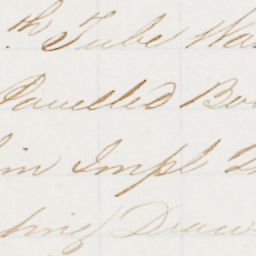 th Tube Wa
Panelled Bo
in Impl
ping Draw